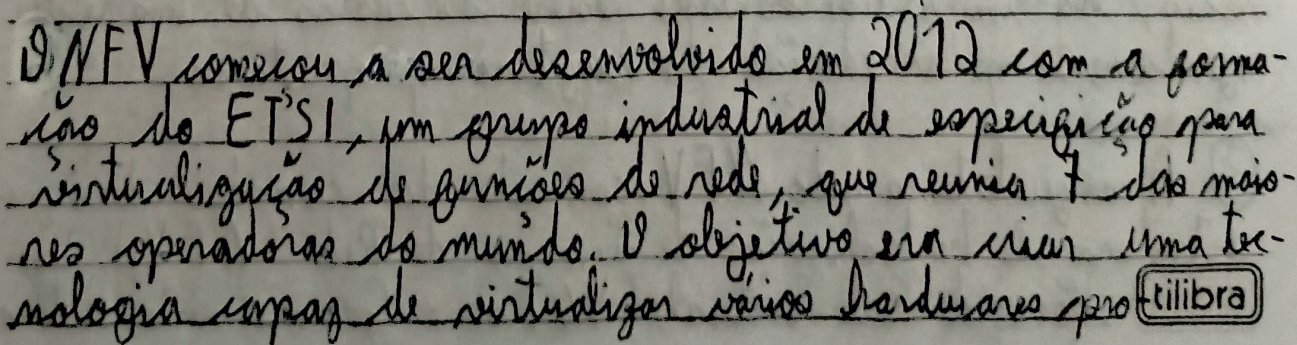 O NFV começou a ser desenvolvido em 2012 com a forma-
ção do ETSI, um grupo industrial de especificção para
virtualização de funções de rede, que reunia 7 das maio-
res operadoras do mundo. O objetivo era criar uma tec-
nologia capaz de virtualizar vários hardwares pro-
tilibra